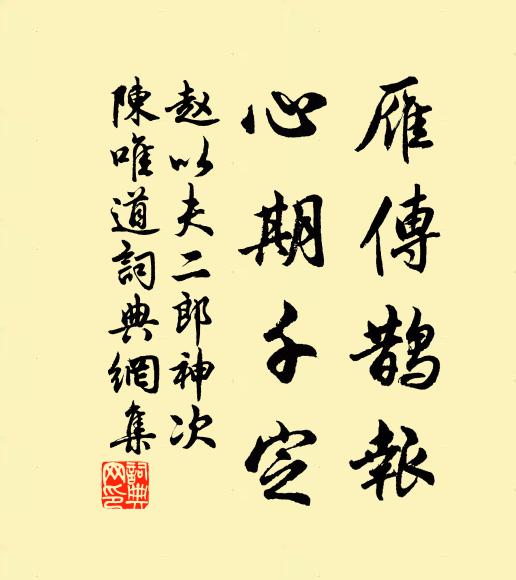 雁傳鵲報
心期千定
赵以夫二郎神次
陳唯道詞典網集
詞典網印